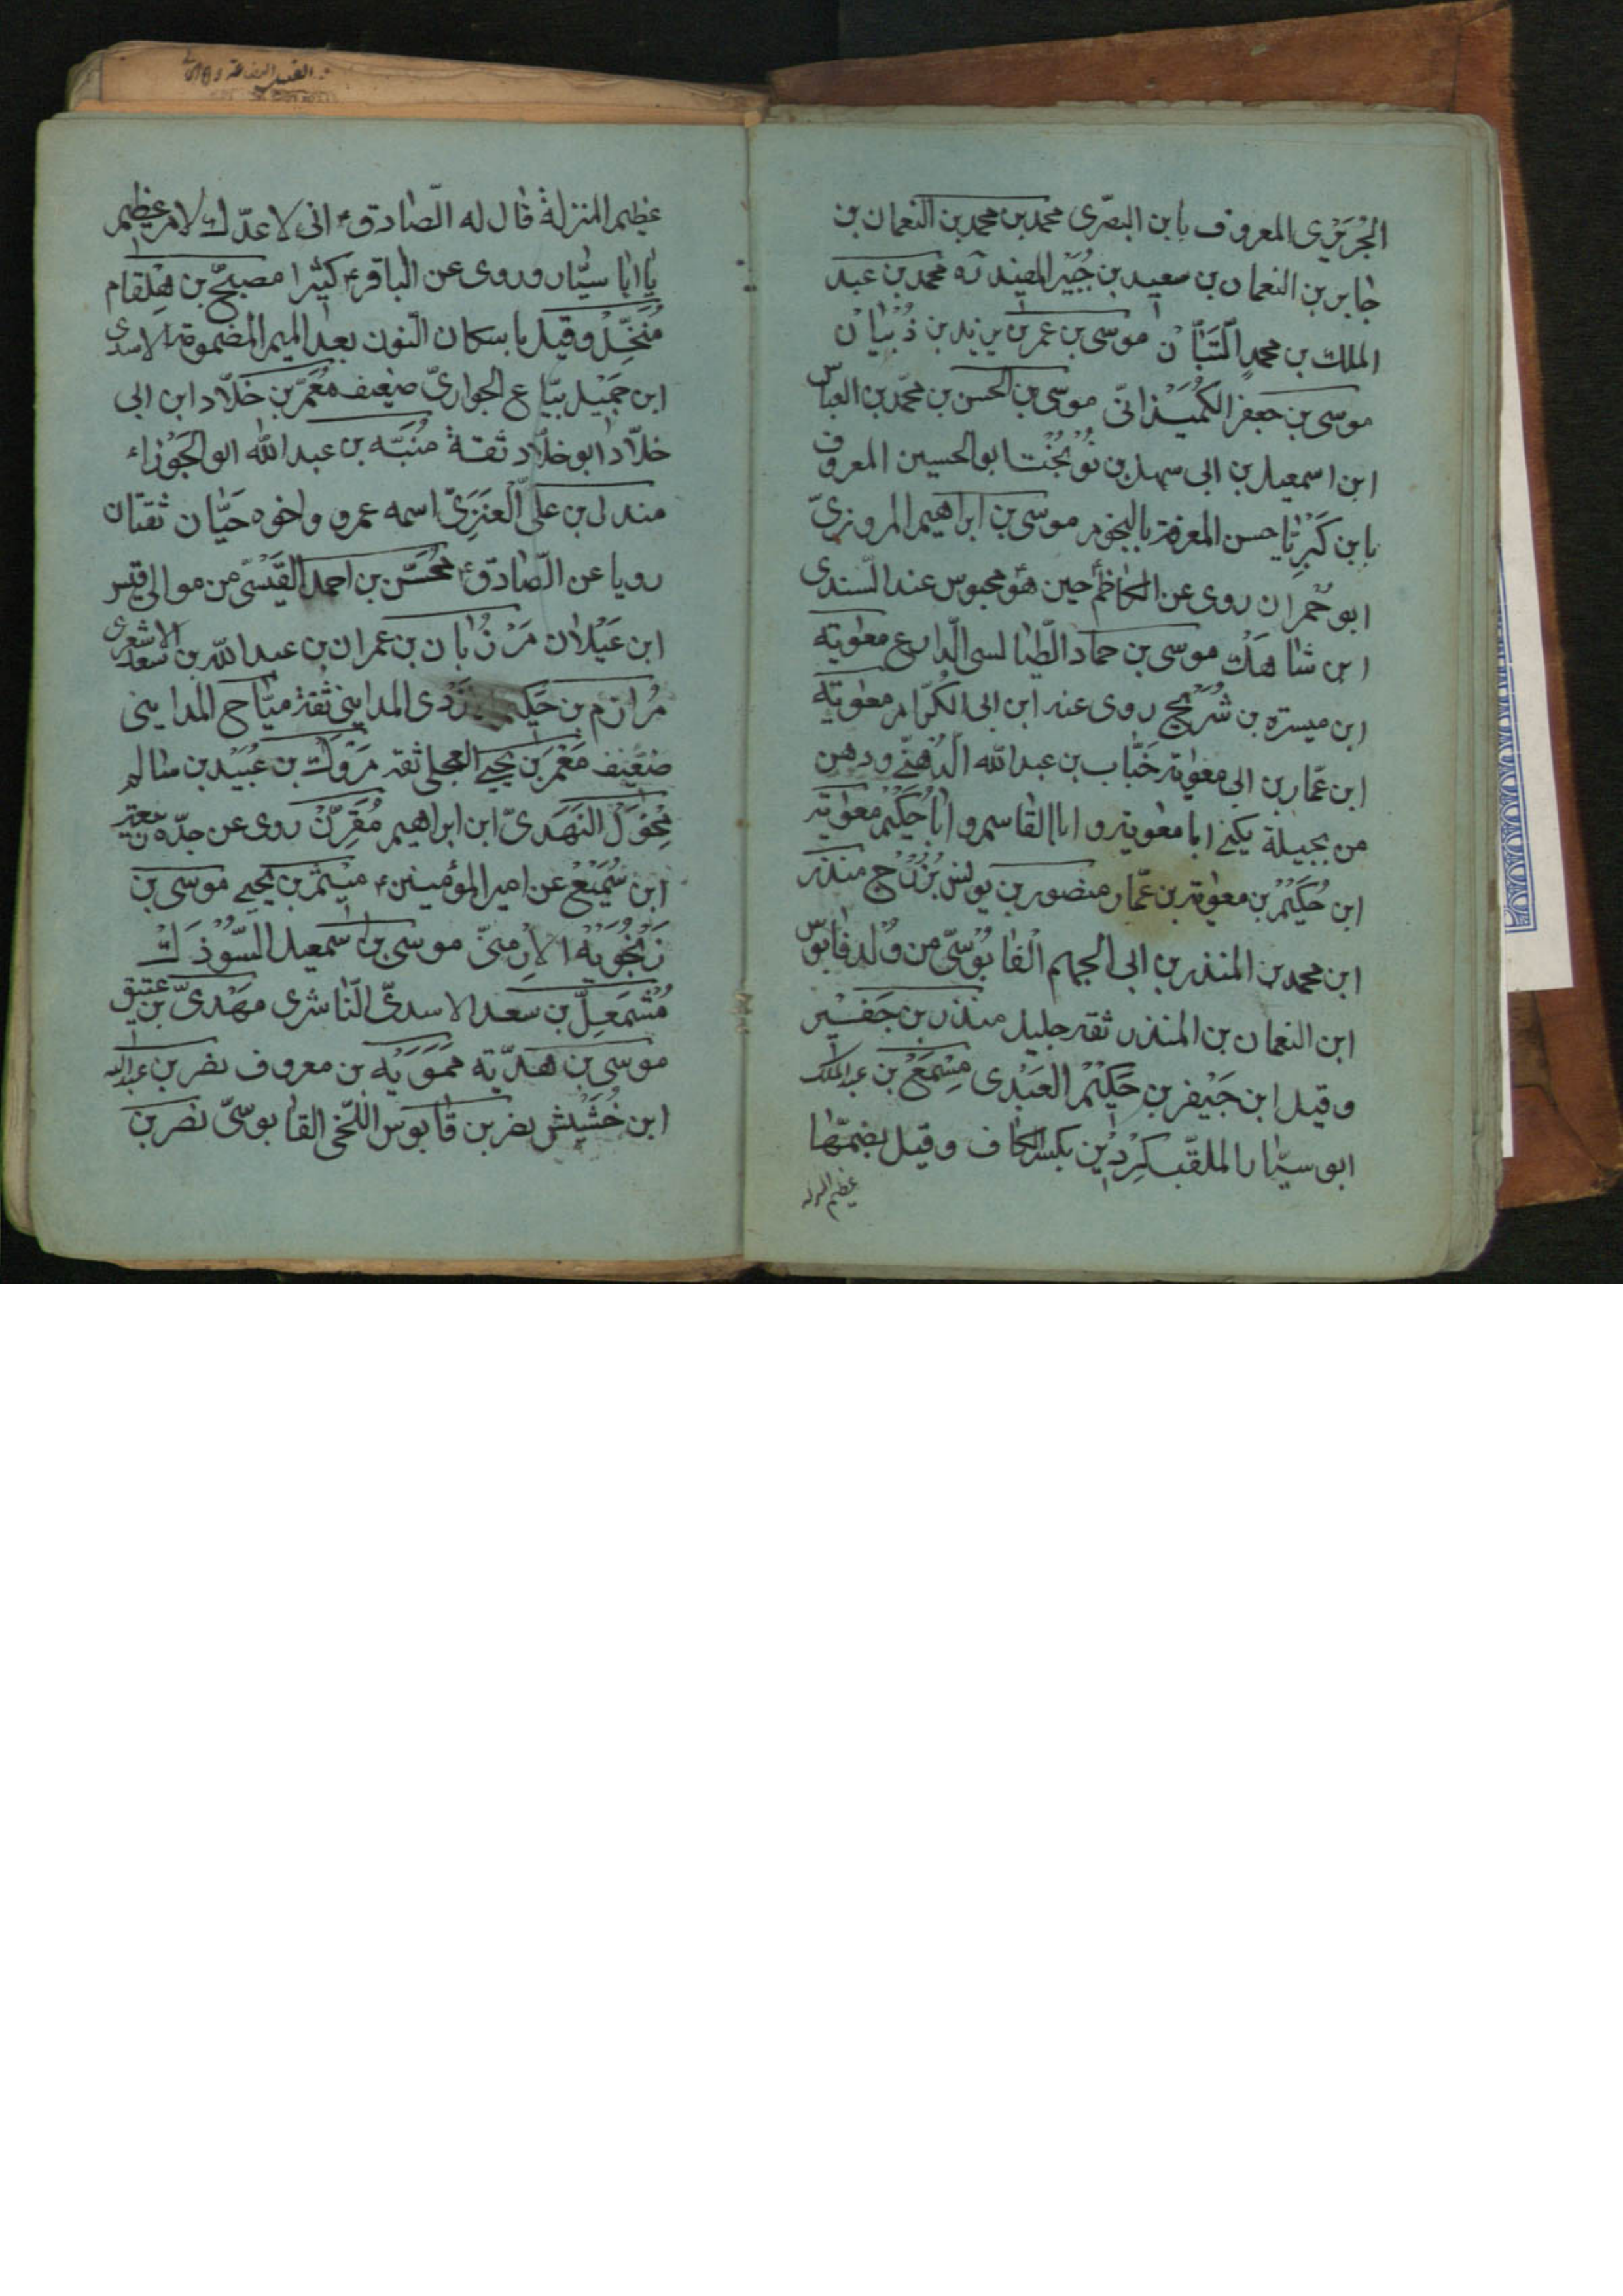 الجُرَيْرى المعروف بابن البصرى محمد بن محمد بن النعمان بن
جابر بن النعمان بن سعيد بن جُبَيْر المفيد ره محمد بن عبد
الملك بن محمدٍ التَّبّان موسى بن عمر بن يزيد بن ذُبْيان
موسى بن جعفر الكُمَيْذانىّ موسى بن الحسن بن محمّد بن العباس
ابن اسمعيل بن ابى سهل بن نُوْبُخْت ابو الحسين المعروف
بابن كَبْرِيّا حسن المعرفة بالنجوم موسى بن ابراهيم المروزىّ
ابو حُمران روى عن الكاظم ع حين هو محبوس عند السّندى
ابن شاهَك موسى بن حماد الطّيالسى الذّارع معوٰية
ابن ميسرة بن شُرَيْح روى عنه ابن ابى الكرّام معوٰية
ابن عمّار بن ابى معوٰية خَبّاب بن عبدالله الدُهْنّى ودهن
من بجيلة يكنى ابا معوٰية و ابا القاسم و ابا حَكيْم معوٰية
ابن حُكَيْم بن معوٰية بن عمّار منصور بن يونس بُزُرْج منذر
ابن محمد بن المنذر بن ابى الجهم القابُوْسىّ من وُلد قابوس
ابن النعمان بن المنذر ثقة جليل منذر بن جَفيْر
وقيل ابن جَيْفر بن حَكيْم العَبْدى مِسْمَعْ بن عبد الملك
ابو سيّار الملقّب كِرْدِيْن بكسر الكاف وقيل بضمّها
عظيم المنزلة
عظيم المنزلة قال له الصّادق ع انى لاعدّك لامر عظيم
يا ابا سيّار وروى عن الباقر ع كثيرا مصبّح بن هِلقام
مُنَخّل وقيل باسكان النّون بعد الميم المضمومة الاسدى
ابن جَمِيْل بيّاع الجوارىّ ضعيف مُعَمَّر بن خلّاد ابن ابى
خلّاد ابو خلّاد ثقة مُنَبّه بن عبد الله ابو الجَوْزاء
مندل بن على العَنَزِىّ اسمه عمرو واخوه حَيّان ثقتان
رويا عن الصّادق ع مُحَسَّن بن احمد القَيْسىّ من موالى قيس
ابن عَيْلان مَرْزُبان بن عمران بن عبد الله بن سعد الاشعرى
مُرازم بن حَكيم الازْدى المداينى ثقة ميّاح المداينى
ضعيف مَعْمَر بن يحيى العجلى ثقة مَرْوَك بن عُبَيْد بن سالم
مُخَوَّل النَهْدىّ ابن ابراهيم مُقَرِّنْ روى عن جدّه ربيعة
ابن سُمَيْع عن امير المؤمنين ع مِيْثم بن يحيى موسى بن
زَنْجُوَيْه الارمنىّ موسى بن اسمعيل
مُشْمَعِلّ بن سعد الاسدىّ النّاشرى مهدىّ بن عتيق
موسى بن هدّيّه حَمّوَيْه بن معروف نضر بن عبدالله
ابن خُشَيْش نضر بن قابوس اللّخمى القابوسىّ نصر بن